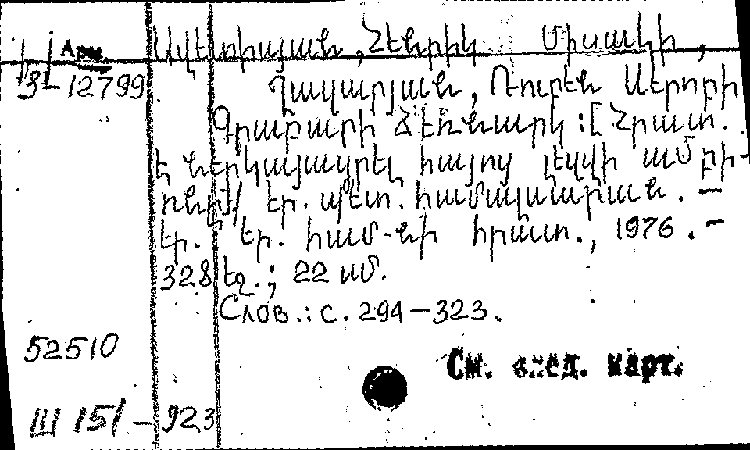 Арм. Ավետիսյան, Հենրիկ Միսակի,
3-12799 Ղազարյան, Ռուբեն Սերոբի
Գրաբարի ձեռնարկ: [Հրատ.
է ներկայացրել հայոց լեզվի ամբի-
ոնը]/ Եր. պետ. համալսարան. —
Եր. Եր. համ-նի հրատ., 1976. —
328 էջ.; 22 սմ.
Слов.: с. 294—323.
52510
См. след. карт.
Ш 151 — 923